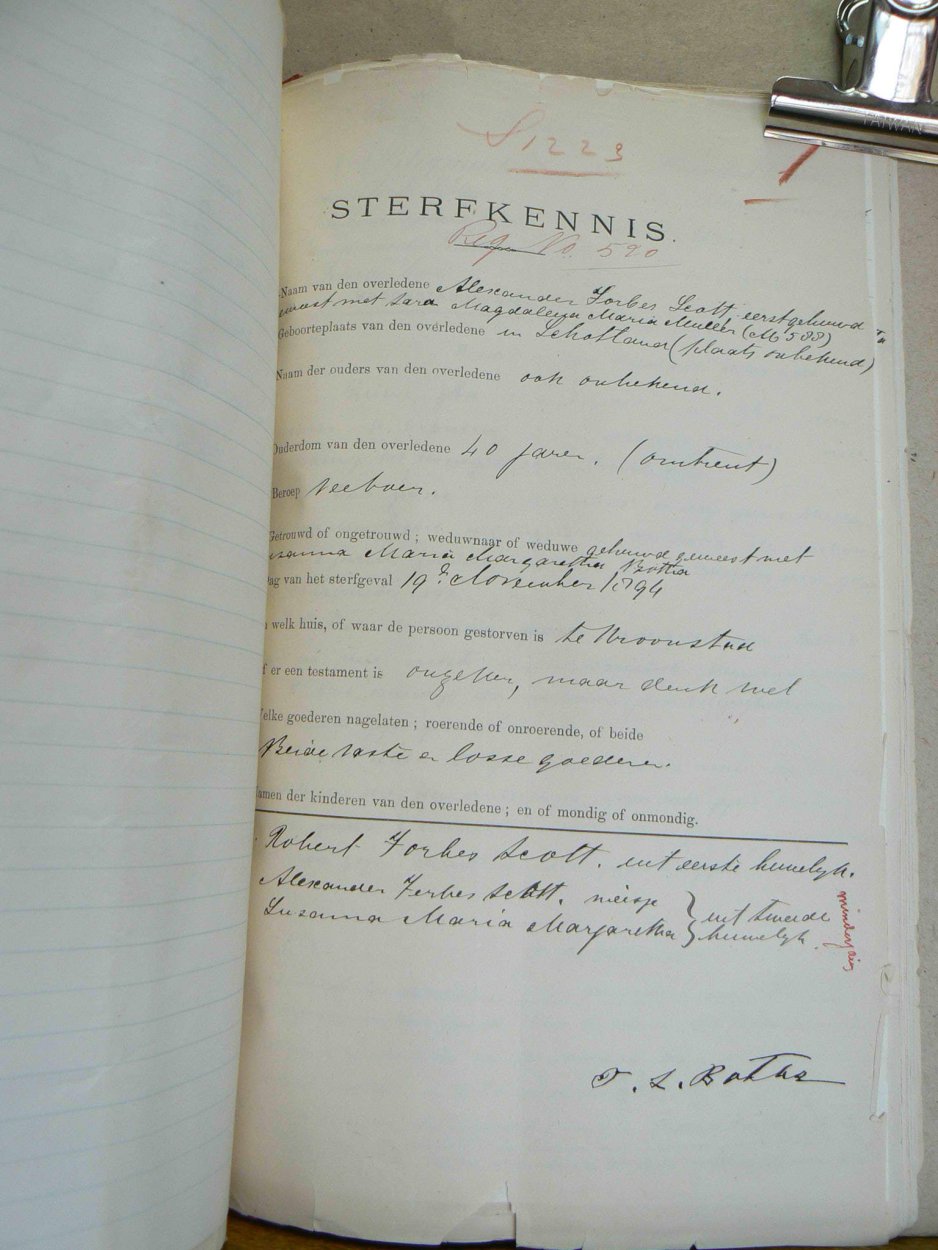 TAIWAN
S1223
STERFKENNIS.
Reg No. 590
Naam van den overledene Alexander Forbes Scott eerst gehuwd
geweest met Sara Magdalena Maria Muller (M 588)
Geboorteplaats van den overledene in Schotland (plaats onbekend)
Naam der ouders van den overledene ook onbekend.
Ouderdom van den overledene 40 jaren. (omtrent)
Beroep Veeboer.
Getrouwd of ongetrouwd; weduwnaar of weduwe gehuwd geweest met
Susanna Maria Margaretha Botha
Dag van het sterfgeval 19de November 1894
n welk huis, of waar de persoon gestorven is te Kroonstad
f er een testament is maar denk wel
elke goederen nagelaten; roerende of onroerende, of beide
Beide vaste en losse goederen.
amen der kinderen van den overledene; en of mondig of onmondig.
Robert Forbes Scott. uit eerste huwelyk.
Alexander Forbes Scott. meisje } uit tweede
Susanna Maria Margaretha } huwelyk.
minderjarig
S. Botha